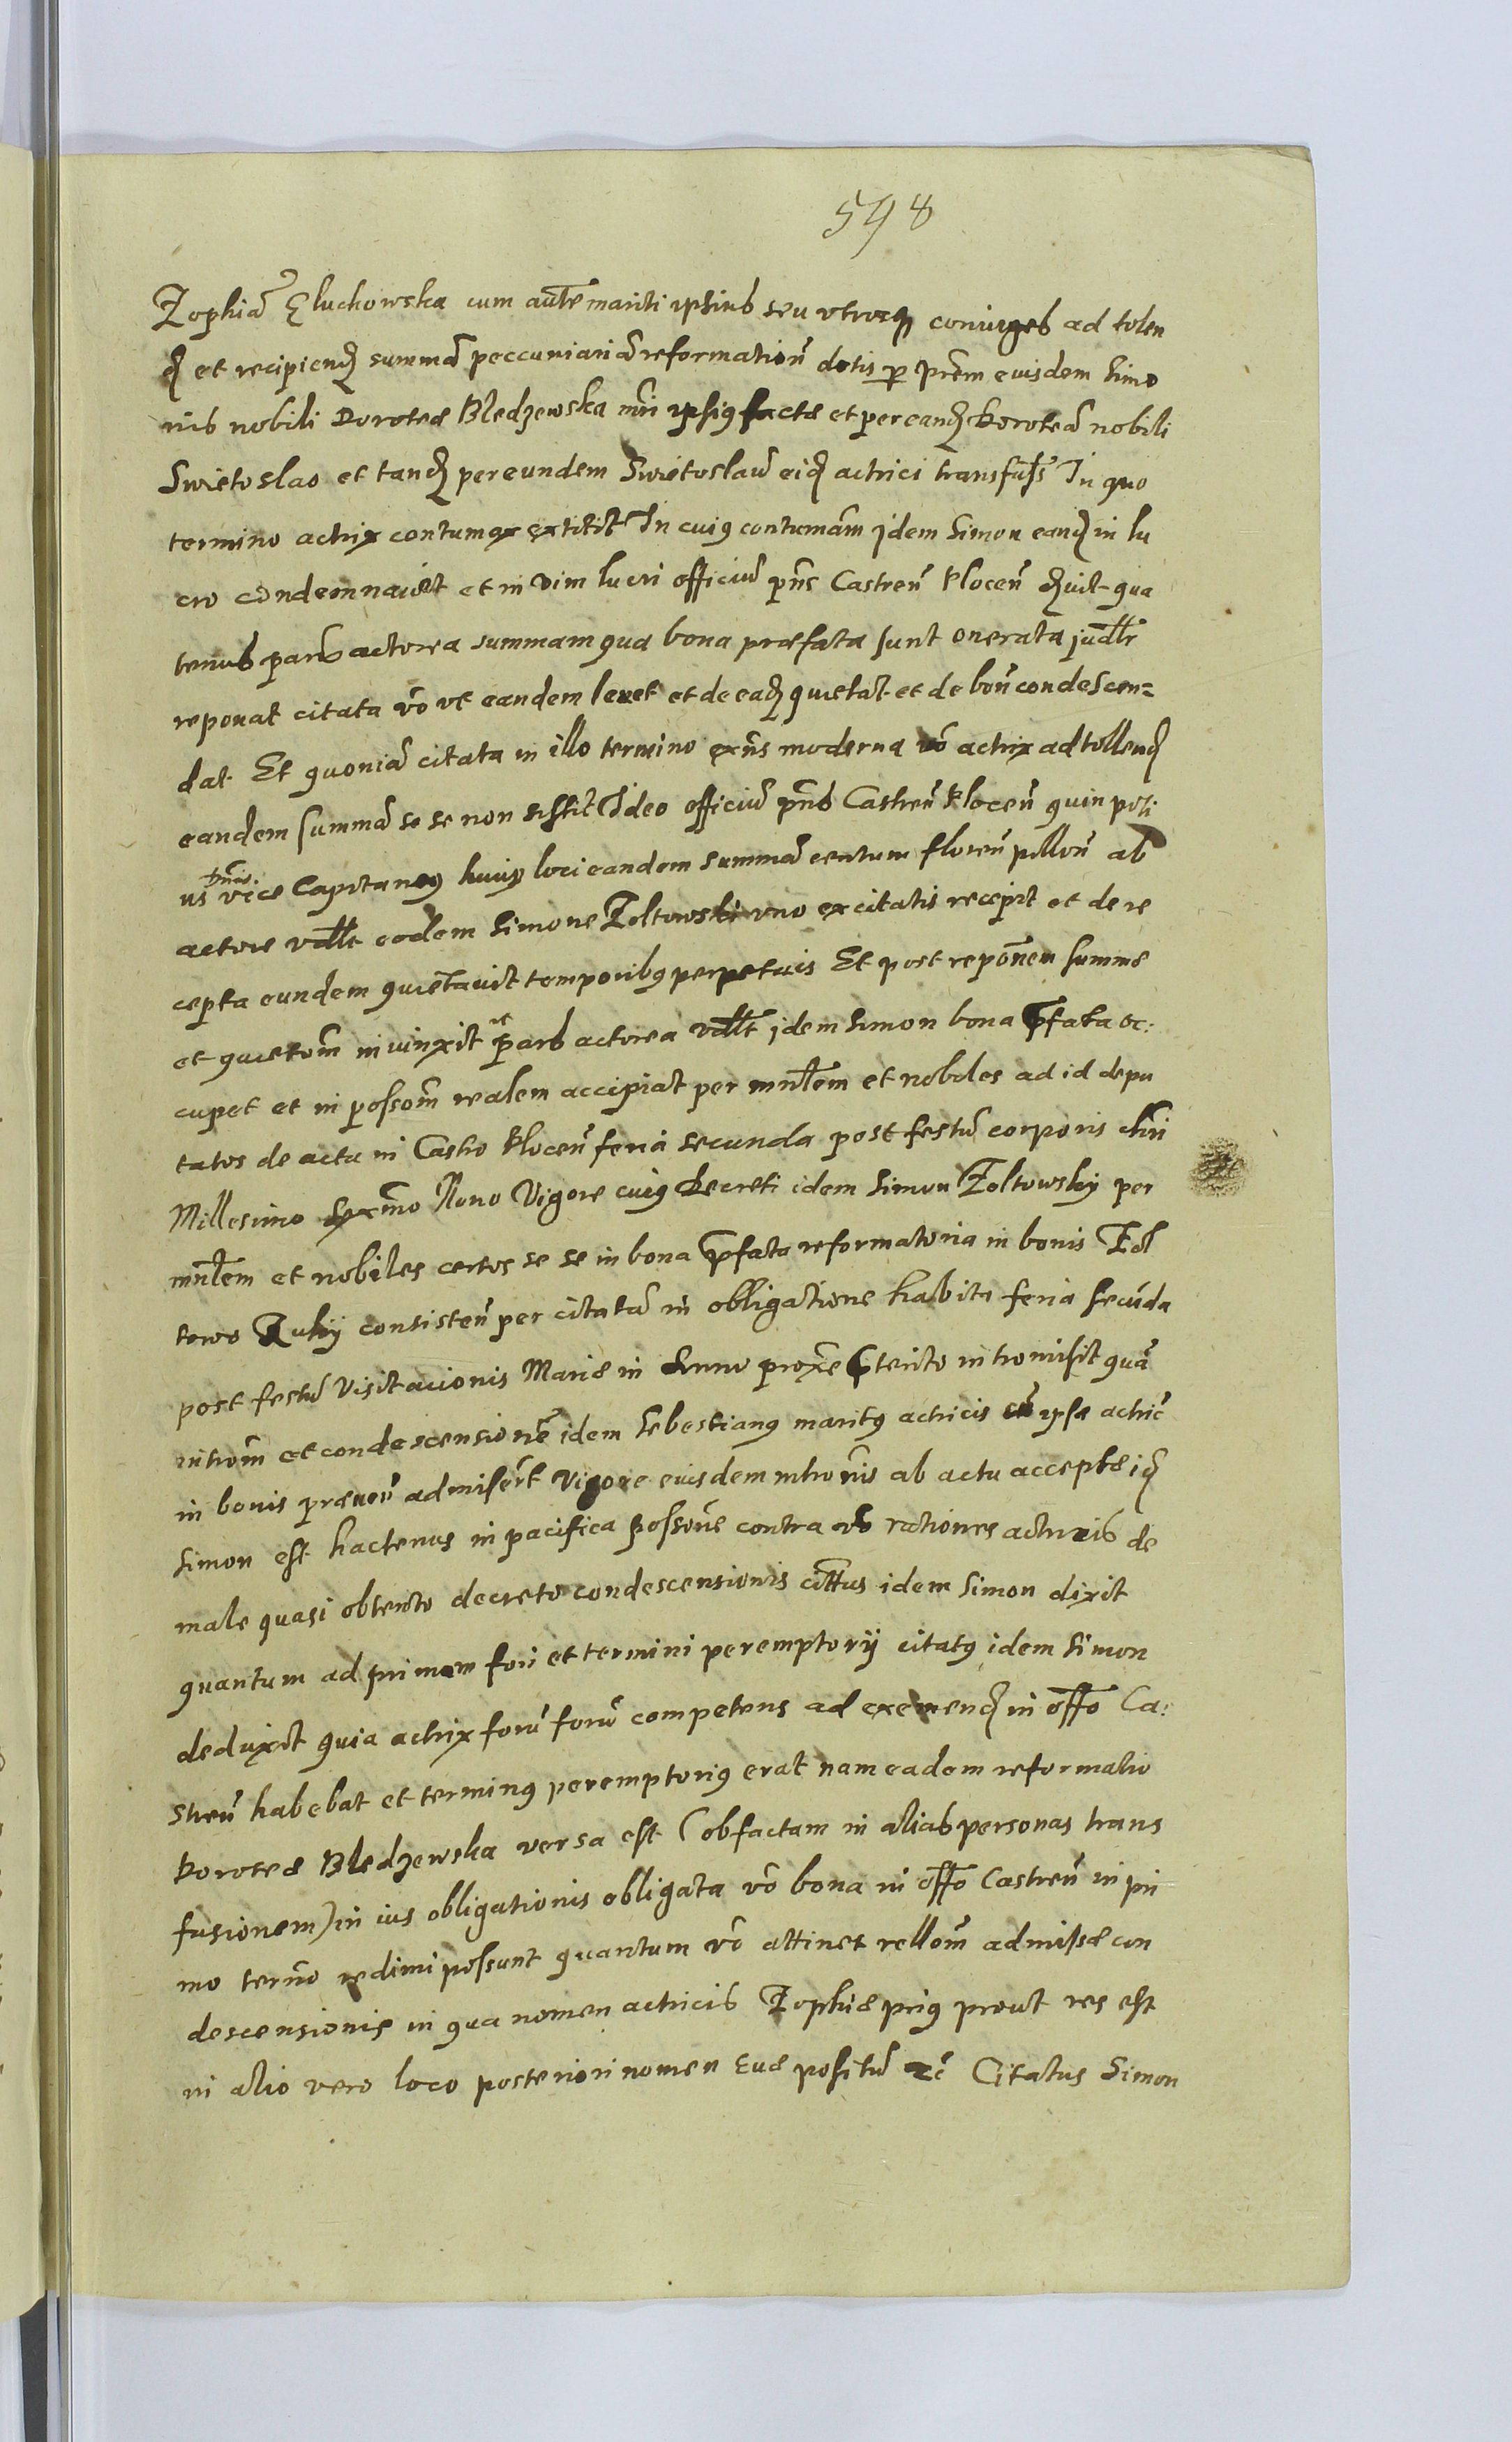 598
Zophiã Gluchowska cum autẽ mariti ipsius seu utrosq coniuges ad tolen
d et recipiend summã peccuniariã reformationũ dotis p prem eiusdem Simo
nis nobili Dorotea Bledzewska mri ipsius factã et per eand Doroteã nobili
Swietoslao et tand per eundem Swietoslaũ eid actrici transfus In quo
termino actrix contumax extitit In cuius contumam idem Simon eand in lu
cro condemnavit et in vim lucri officiũ pns Castren Plocen qua
tenus pars actorea summam qua bona præfata sunt onerata
reponat citata vo ut eandem levet et de ead quietat et de bon condescen=
dat Et quoniã citata in illo termino exns moderna vo actrix ad tollend
eandem summã se se non sistit Ideo officiũ pns Castren Plocen quin poti
us Dnus vice Capitaneus huius loci eandem summã centum floren pollon ab
actore vdlt eodem Simone Zoltowski uno ex citatis recepit et de re
cepta eundem quietavit temporibus perpetuis Et post reponem summe
et quietom invinxit ut pars actorea vdlt idem Simon bona pfata oc:
cupet et in possom realem accipiat per mnlem et nobiles ad id depu
tatos de actu in Castro Plocen feria secunda post festũ corporis chri
Millesimo sexmo Nono Vigore cuius Decreti idem Simon Zoltowsky per
mnlem et nobiles certos se se in bona pfata reformatoria in bonis Zol
towo Ruky consisten per citatã in obligatione habita feria secuda
post festũ Visitacionis Marie in Anno proxe pterito intromisit quã
introm et condescensionẽ idem Sebestianus maritus actricis cũ ipsa actric
in bonis admisert Vigore eiusdem intronis ab actu acceptæ id
Simon est hactenus in pacifica possone contra vo rationes actricis de
male quasi obtento decreto condescensionis idem Simon dixit
quantum ad primam fori et termini peremptorii citatus idem Simon
deduxit quia actrix forũ forũ competens ad exemend in offo Ca:
stren habebat et terminus peremptorius erat nam eadem reformatio
Dorotea Bledzewska versa est (ob factam in alias personas trans
fusionem) in ius obligationis obligata vo bona in offo Castren in pri
mo termo redimi possunt quantum vo attinet rellom admissæ con
descensionis in qua nomen actricis Zophiæ prius prout res est
in alio vero loco posteriori nomen Evæ positũ etc Citatus Simon